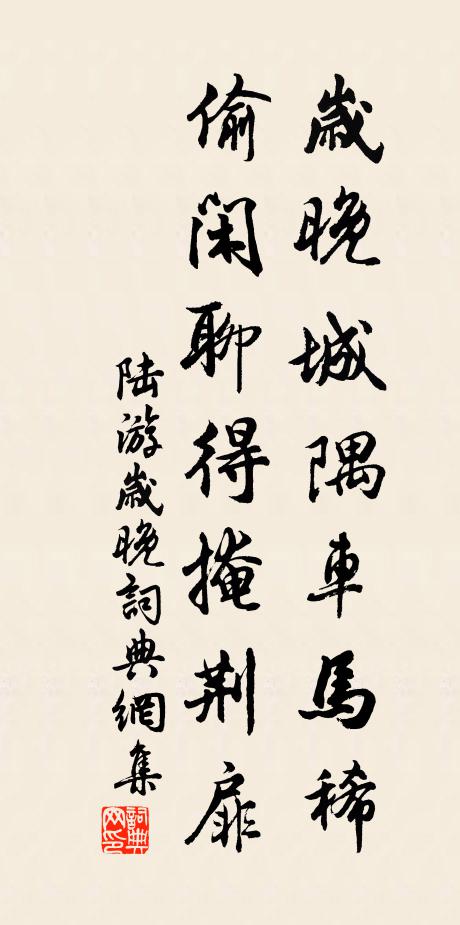 歲晚城隅車馬稀
偷閑聊得掩荆扉
陆游歲晚詞典網集
詞典
网印